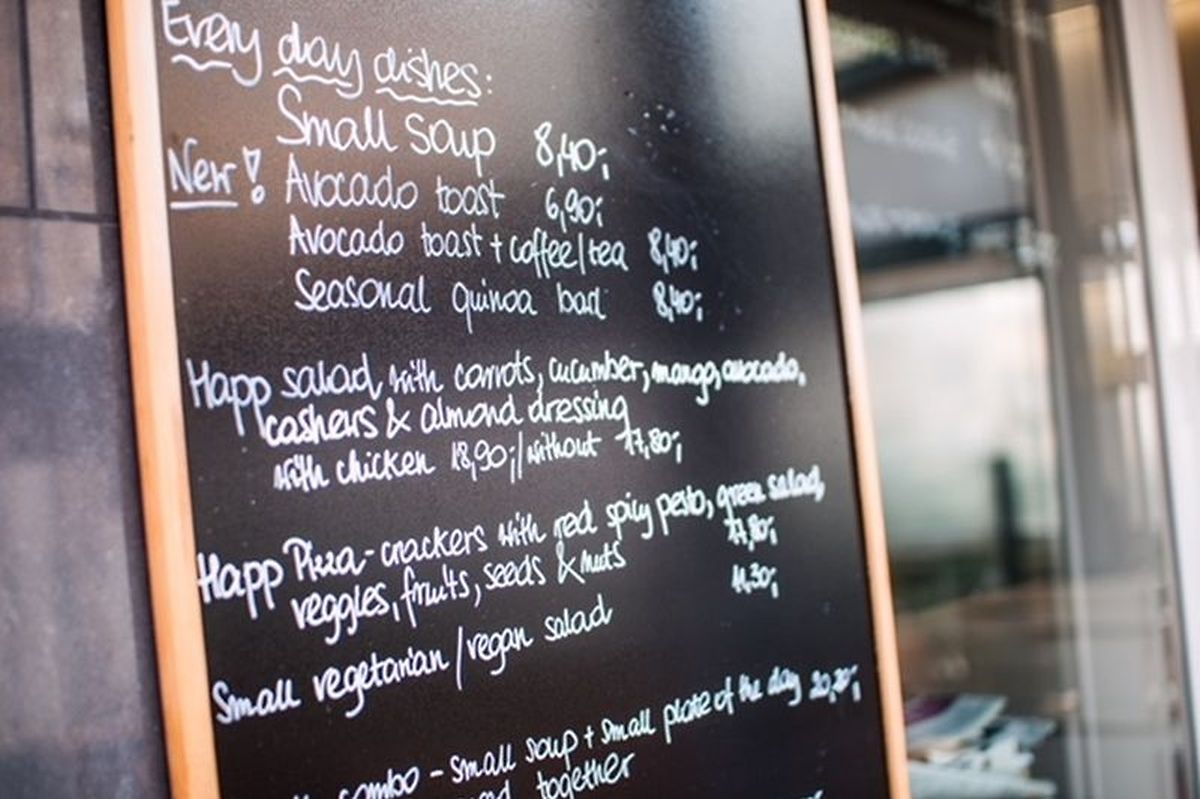 Every day dishes:
Small soup 8,40;
New! Avocado toast 6,90;
Avocado toast + coffee/tea 8,40;
Seasonal quinoa bowl 8,40;
Happ salad with carrots, cucumber, mango, avocado,
cashews & almond dressing
with chicken 18,90;/without 17,80;
Happ Pizza-crackers with red spicy pesto, green salad,
veggies, fruits, seeds & nuts 17,80;
Small vegetarian/vegan salad 11,30;
combo - small soup + small plate of the day 20,20;
together